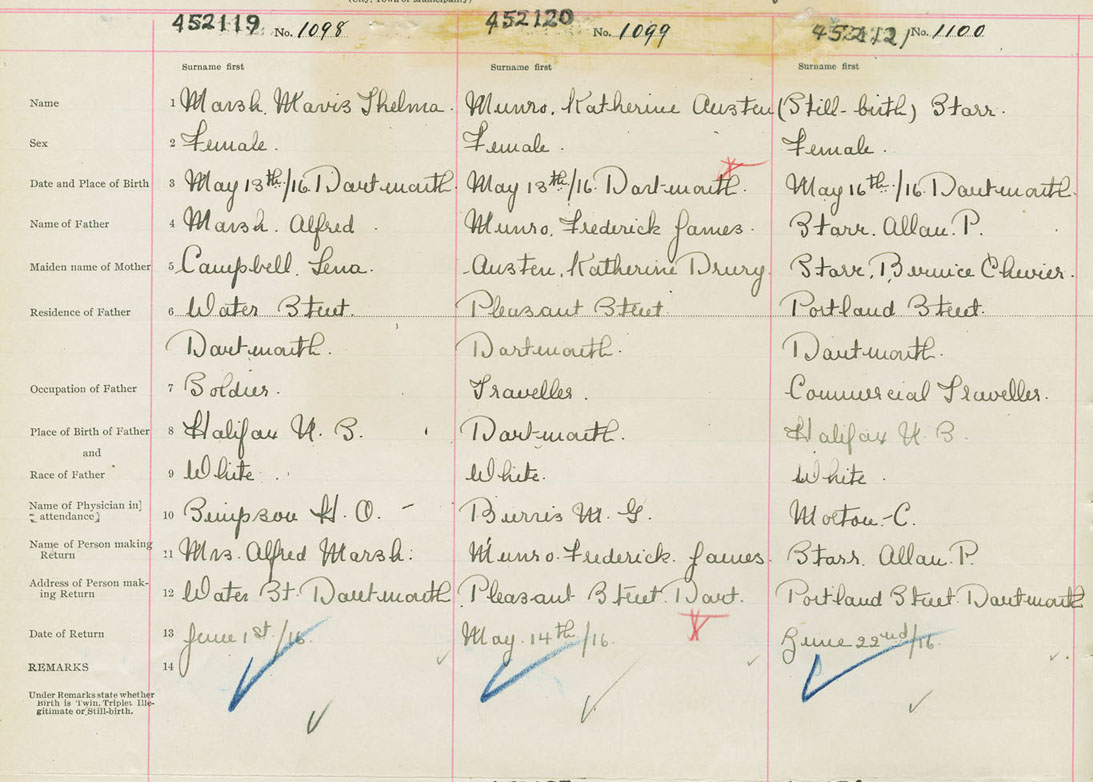 (City, Town or Municipality)
452119 No. 1098 452120 No. 1099 452121 No. 1100
Surname first Surname first Surname first
Name 1 Marsh. Mavis Thelma. Munro. Katherine Austen (Still-birth) Starr.
Sex 2 Female. Female. Female.
Date and Place of Birth 3 May 13th/16. Dartmouth. May 13th/16. Dartmouth. May 16th/16. Dartmouth.
Name of Father 4 Marsh. Alfred. Munro. Frederick James. Starr. Allan. P.
Maiden name of Mother 5 Campbell. Lena. Austen. Katherine Drury. Starr. Bernice
Residence of Father 6 Water Street. Pleasant Street. Portland Street.
Dartmouth. Dartmouth. Dartmouth.
Occupation of Father 7 Soldier. Traveller. Commercial Traveller.
Place of Birth of Father 8 Halifax N. S. Dartmouth. Halifax N. S.
and
Race of Father 9 White. White. White.
Name of Physician in
attendance 10 Simpson H. O. - Burris M. G. Morton-C.
Name of Person making
Return 11 Mrs. Alfred Marsh. Munro. Frederick. James. Starr. Allan. P.
Address of Person mak-
ing Return 12 Water St. Dartmouth. Pleasant Street. Dart. Portland Street. Dartmouth
Date of Return 13 June 1st/16. May. 14th/16. June 22nd/16.
REMARKS 14
Under Remarks state whether
Birth is Twin, Triplet, Ille-
gitimate or Still-birth.